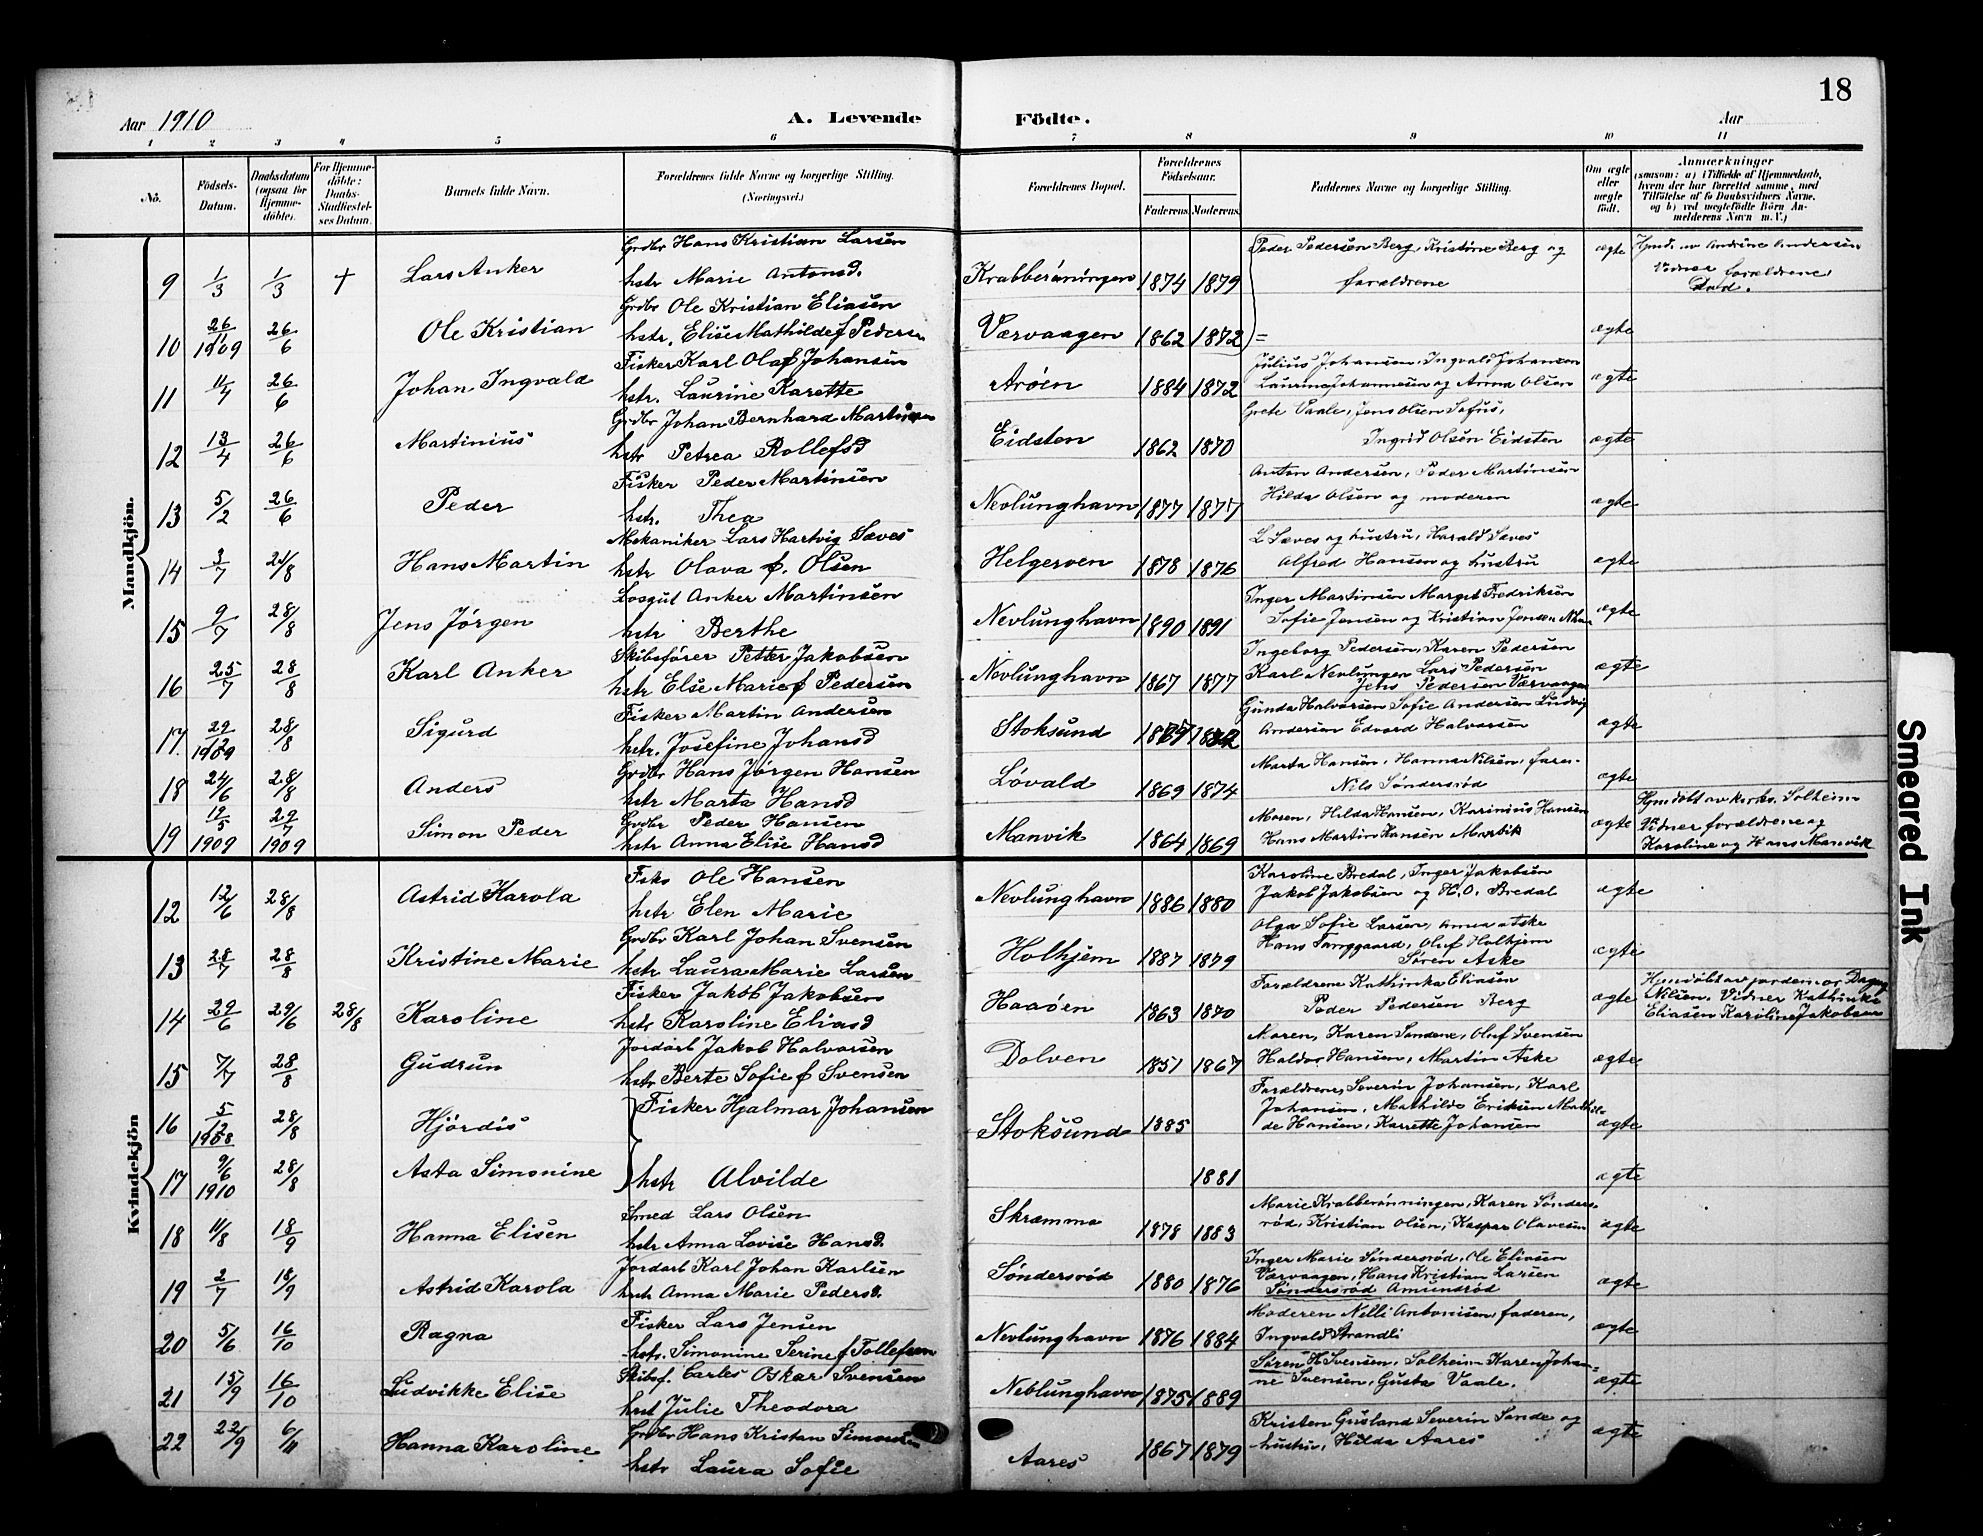 18
Aar 1910 A. Levende Födte. Aar
1 2 3 4 5 6 7 8 9 10 11
No. Födsels-Datum. Daabsdatum (ogsaa for Hjemmedöbte). For Hjemmedöbte: Daabs-Stadfæstelses Datum. Barnets fulde Navn. Forældrenes fulde Navne og borgerlige Stilling. (Næringsvei.) Forældrenes Bopæl. Forældrenes Födselsaar. Faderens. Moderens. Faddernes Navne og borgerlige Stilling. Om ægte eller uægte födt. Anmærkninger (saasom: a) i Tilfælde af Hjemmedaab, hvem der har forrettet samme, med Tilföielse af to Daabsvidners Navne, og b) ved uægtefödte Börn Anmelderens Navn m. V.)
Mandkjön.
9 1/3 1/3 + Lars Anker Grdbr Hans Kristian Larsen
hstr Marie Antonsd. Krabberønningen 1874 1879 Peder Pedersen Berg, Kristine Berg og forældrene ægte Hjmd. av Andrine Andersen Vidner forældrene. Død.
10 26/11 1909 26/6 Ole Kristian Grdbr Ole Kristian Eliasen
hstr. Elise Mathilde f Pedersen Værvaagen 1862 1872 = ægte
11 11/4 26/6 Johan Ingvald Fisker Karl Olaf Johansen
hstr. Laurine Karette Arøen 1884 1872 Julius Johansen, Ingvald Johansen
Laurine Johannesen og Anna Olsen ægte
12 13/4 26/6 Martinius Grdbr Johan Bernhard Martinsen
hstr Petrea Rollefsd Eidsten 1862 1870 Grete Vaale, Jens Olsen Sofus,
Ingrid Olsen Eidsten ægte
13 5/2 26/6 Peder Fisker Peder Martinsen
hstr. Thea Nevlunghavn 1877 1877 Anton Andersen, Peder Martinsen
Hilda Olsen og moderen ægte
14 3/7 21/8 Hans Martin Mekaniker Lars Hartvig Sæves
hstr Olava f. Olsen Helgerven 1878 1876 L Sæves og hustru, Harald Sæves
Alfred Hansen og hustru ægte
15 9/7 28/8 Jens Jørgen Losgut Anker Martinsen
hstr Berthe Nevlunghavn 1890 1891 Inger Martinsen Marget Fredriksen
Sofie Jensen og Kristian Jensen ægte
16 25/7 28/8 Karl Anker Skibsfører Petter Jakobsen
hstr Else Marie f Pedersen Nevlunghavn 1867 1877 Ingeborg Pedersen, Karen Pedersen
Karl Nevlungen Lars Pedersen
Jens Pedersen Værvaagen ægte
17. 29/12 1909 28/8 Sigurd Fisker Martin Andersen
hstr. Josefine Johansd Stoksund Gunda Halvorsen Sofie Andersen Ludvig
Andersen Edvard Halvorsen ægte
18 24/6 28/8 Anders Grdbr Hans Jørgen Hansen
hstr Marta Hansd Løvald 1869 1874 Marta Hansen, Hanna Nilsen, faren
Nils Søndersrød ægte
19 12/5 1909 29/7 1909 Simon Peder Grdbr Peder Hansen
hstr Anna Elise Hansd Manvik 1864 1869 Moren, Hilda Hansen, Karinius Hansen
Hans Martin Hansen ægte Hjmdøbt av kirks. Solheim
Vidner forældrene og
Karoline og Hans Manvik
Kvindekjön
12 12/6 28/8 Astrid Karola Fisk. Ole Hansen
hstr Elen Marie Nevlunghavn 1886 1880 Karoline Bredal, Inger Jakobsen
Jakob Jakobsen og H.O. Bredal ægte
13 28/7 28/8 Kristine Marie Grdbr Karl Johan Svensen
hstr Laura Marie Larsen Holhjem 1887 1879 Olga Sofie Larsen, Anna Aske
Hans Tanggaard, Oluf Holhjem
Søren Aske ægte
14 29/6 29/6 28/8 Karoline Fisker Jakob Jakobsen
hstr Karoline Eliasd Haaøen 1863 1870 Forældrene Kathinka Eliasen
Peder Pedersen Berg ægte Hjmdøbt av jordemor Dagny
Nilsen. Vidner Kathinka
Eliasen Karoline Jakobsen
15 7/7 28/8 Gudrun Jordarb Jakob Halvorsen
hstr Berte Sofie f Svensen Dolven 1857 1867 Moren, Karen Sandene, Oluf Svensen
Haldor Hansen, Martin Aske ægte
16 5/12 1908 28/8 Hjördis Fisker Hjalmar Johansen Stoksund 1885 Forældrene, Severin Johansen, Karl
Johansen, Mathilde Eriksen Mathilde
Hansen, Karrette Johansen ægte
17 9/6 1910 28/8 Asta Simonine hstr Alvilde 1881 ægte
18 11/8 18/9 Hanna Elisen Smed Lars Olsen
hstr Anna Lovise Hansd. Skramma 1878 1883 Marie Krabberønningen, Karen Søndersrød,
Kristian Olsen, Kaspar Olavesen ægte
19 2/7 18/9 Astrid Karola Jordarb Karl Johan Karlsen
hstr Anna Marie Pedersd. Søndersrød 1880 1876 Inger Marie Søndersrød, Ole Eliasen
Værvaagen, Hans Kristian Larsen
Søndersrød Amundrød ægte
20 5/6 16/10 Ragna Fisker Lars Jensen
hstr. Simonine Serine f Tollefsen Nevlunghavn 1876 1884 Moderen Nilli Antonisen, faderen,
Ingvald Strandli ægte
21 15/9 16/10 Ludvikke Elise Skibsf. Carles Oskar Svensen
hust Julie Theodora Neblunghavn 1875 1889 Søren H Svensen, Solheim Karen Johanne
Svensen, Gusta Vaale. ægte
22 22/9 6/11 Hanna Karoline Grdbr Hans Kristan Simonsen
hstr Laura Sofie Aares 1867 1879 Kristen Gusland Severin Sande og
hustru, Hilda Aares ægte
Smeared Ink